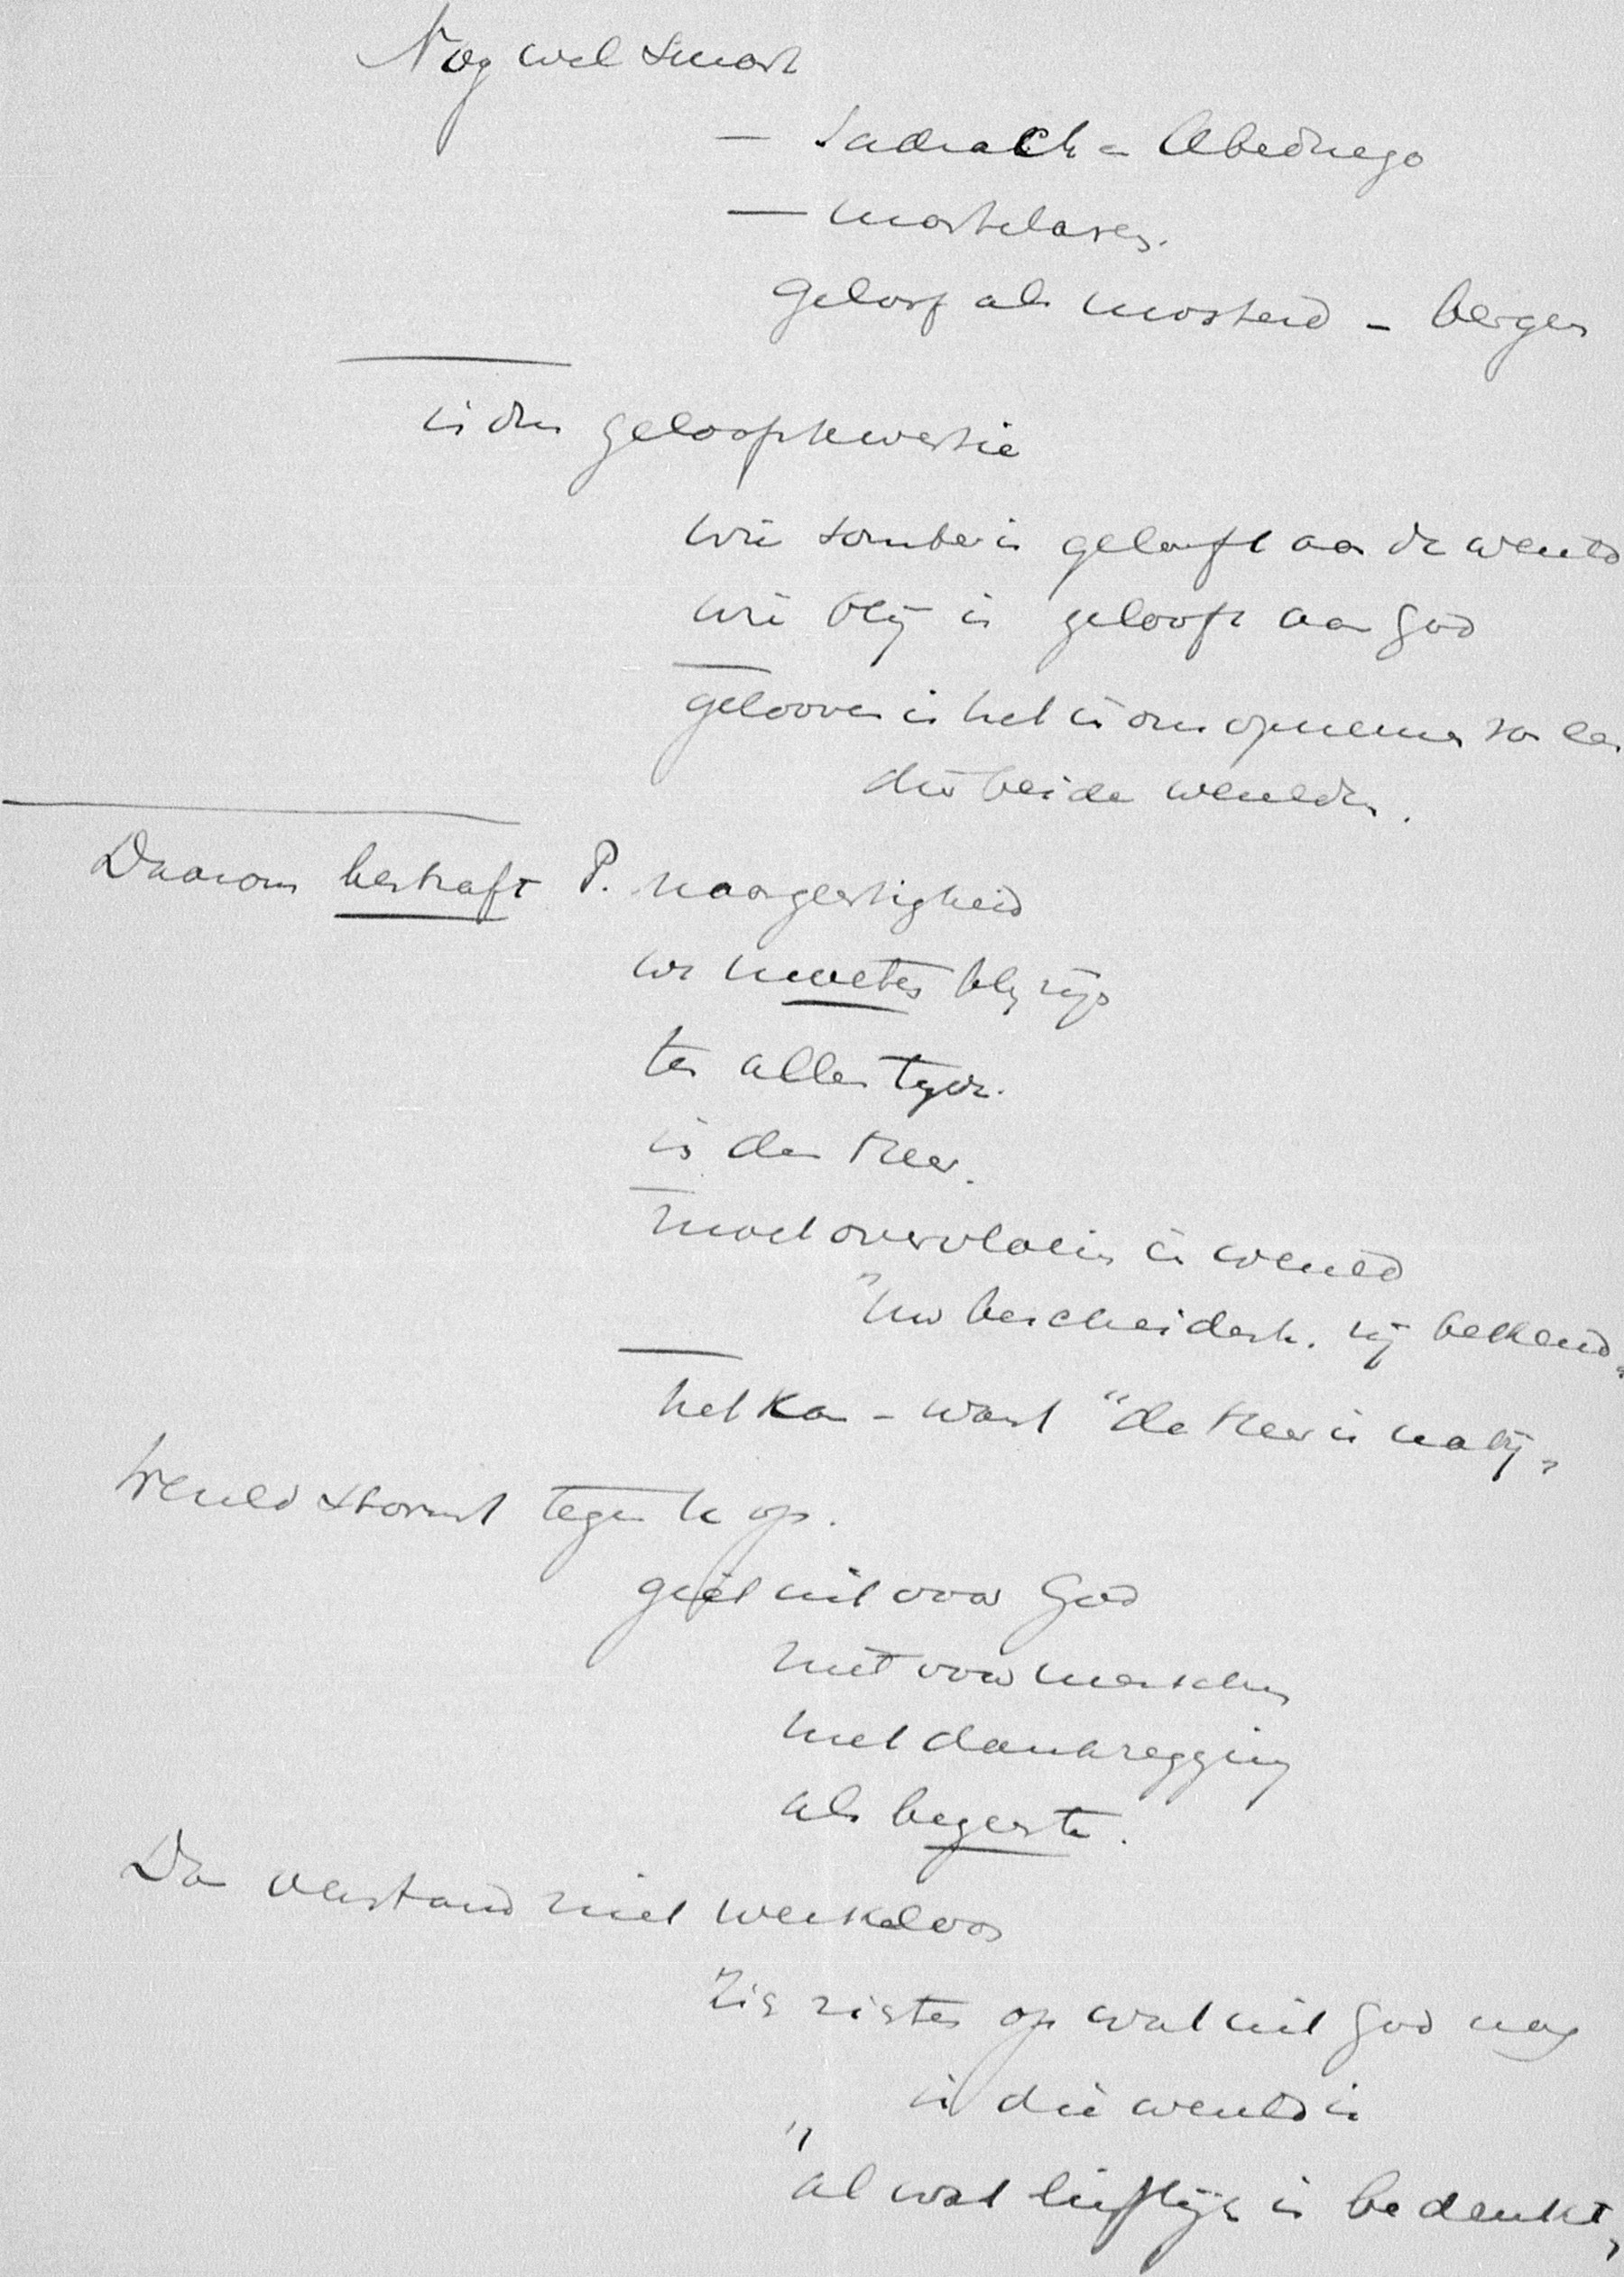 Nog wel smart
— Sadrach - Abednego
— martelaren.
geloof als mosterd - bergen
is dus geloofskwestie
wie somber is gelooft aan de wereld
wie blij is gelooft aan God
gelooven is het in ons opnemen van een
der beide werelden.
Daarom bestraft P. naargeestigheid
we moeten blij zijn
ten allen tijde.
in den Heer.
moet overvloeien in wereld
"Uw bescheidenh. zij bekend"
het kan - want "de Heer is nabij"
Wereld stormt tegen je op.
giet uit voor God
niet voor menschen
met dankzegging
als begeerte.
Dan verstand niet werkeloos
Zie rusten op wat uit God nog
in die wereld is
"al wat liefelijk is bedenkt"